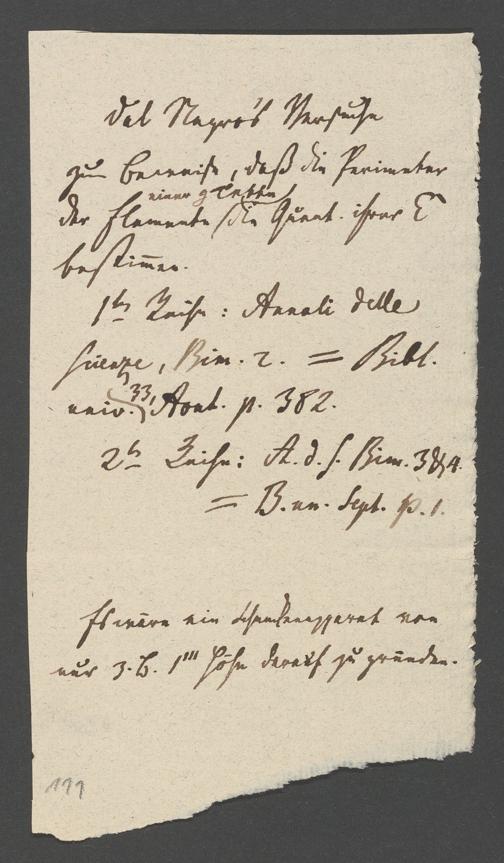 Dal Negro's Versuche
zum Beweise, daß die Perimeter
der Elemente einer g Kette die Quant. ihrer E
bestimmen.
1te Reihe: Annali delle
Scienze, Bim. 2. = Bibl.
univ. 33, Aout. p. 382.
2te Reihe: A. d. S. Bim. 3 & 4.
= B. un. Sept. p. 1.
Es wäre ein von
nur z.B. 1''' Höhe darauf zu gründen.
199